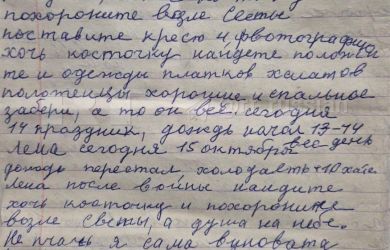 похороните возле Светы
поставите крест и фвотографию
хоть косточку найдете положи
те и одежды платков халатов
полотенцы хорошие и спальное
забери, а то он всё. сегодня
14 праздник, дождь начал 13-14
лена сегодня 15 октября весь день
дождь перестал, холодает +10
лена после войны найдите
хоть косточку и похороните
возле светы, а душа на небе.
Не плачь я сама виновата